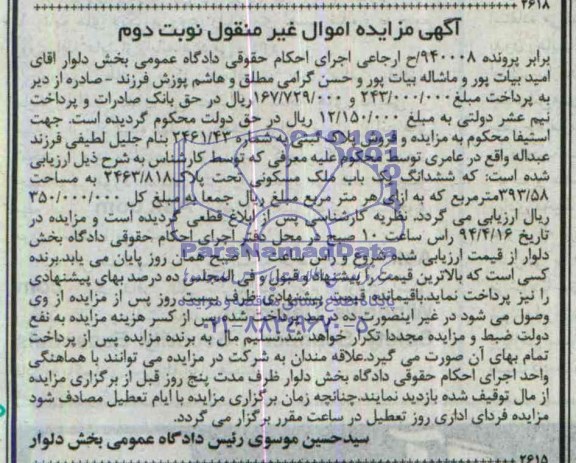 ۲۶۱۸
آگهی مزایده اموال غیر منقول نوبت دوم
برابر پرونده ۹۴۰۰۰۸/ح ارجاعی اجرای احکام حقوقی دادگاه عمومی بخش دلوار آقای
امید بیات پور و ماشاله بیات پور و حسن گرامی مطلق و هاشم پوزش فرزند - صادره از دیر
به پرداخت مبلغ ۲۴۳/۰۰۰/۰۰۰ و ۱۶۷/۷۲۹/۰۰۰ریال در حق بانک صادرات و پرداخت
نیم عشر دولتی به مبلغ ۱۲/۱۵۰/۰۰۰ ریال در حق دولت محکوم گردیده است. جهت
استیفا محکوم به مزایده و فروش پلاک ثبتی به شماره ۲۴۶۱/۴۳ بنام جلیل لطیفی فرزند
عبداله واقع در عامری توسط محکوم علیه معرفی که توسط کارشناس به شرح ذیل ارزیابی
شده است: که ششدانگ یک باب ملک مسکونی تحت پلاک ۲۴۶۳/۸۱۸ به مساحت
۳۹۳/۵۸مترمربع که به ازای هر متر مربع مبلغ ریال جمعا به مبلغ کل ۳۵۰/۰۰۰/۰۰۰
ریال ارزیابی می گردد. نظریه کارشناسی پس از ابلاغ قطعی گردیده است و مزایده در
تاریخ ۹۴/۴/۱۶ راس ساعت ۱۰ صبح در محل دفتر اجرای احکام حقوقی دادگاه بخش
دلوار از قیمت ارزیابی شده شروع و راس ساعت ۱۱ صبح همان روز پایان می یابد.برنده
کسی است که بالاترین قیمت را پیشنهاد و قبول و فی المجلس ده درصد بهای پیشنهادی
را نیز پرداخت نماید.باقیمانده قیمت پیشنهادی ظرف بیست روز پس از مزایده از وی
وصول می شود در غیر اینصورت ده درصد پرداخت شده پس از کسر هزینه مزایده به نفع
دولت ضبط و مزایده مجددا تکرار خواهد شد.تسلیم مال به برنده مزایده پس از پرداخت
تمام بهای آن صورت می گیرد.علاقه مندان به شرکت در مزایده می توانند با هماهنگی
واحد اجرای احکام حقوقی دادگاه بخش دلوار ظرف مدت پنج روز قبل از برگزاری مزایده
از مال توقیف شده بازدید نمایند.چنانچه زمان برگزاری مزایده با ایام تعطیل مصادف شود
مزایده فردای اداری روز تعطیل در ساعت مقرر برگزار می گردد.
سیدحسین موسوی رئیس دادگاه عمومی بخش دلوار
۲۶۱۵
ParsNamadData
۰۲۱-۸۸۳۴۹۶۷۰-۵